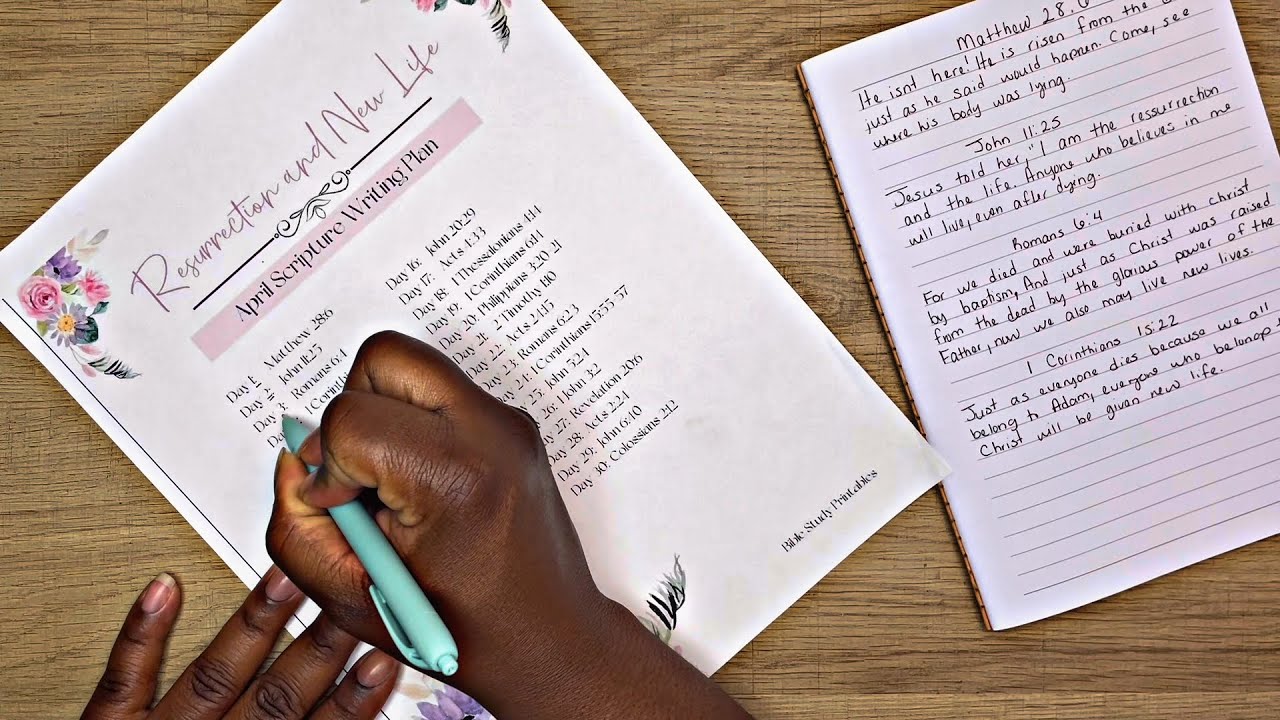 Resurrection and New Life
April Scripture Writing Plan
Day 1: Matthew 28:6
Day 2: John 11:25
Day Romans 6:4
1 Corin
Day 16: John 20:29
Day 17: Acts 4:33
Day 18: 1 Thessalonians 4:14
Day 19: 1 Corinthians 6:14
Day 20: Philippians 3:20-21
Day 21: 2 Timothy 1:10
Day 22: Acts 2:15
Day 23: Romans 6:23
1 Corinthians 15:55-57
John 5:24
26: 1 John 3:2
Day 27: Revelation 20:6
Day 28: Acts 2:24
Day 29: John 6:40
Day 30: Colossians 2:12
Bible Study Printables
Matthew 28:6
He isnt here! He is risen from the
just as he said would happen. Come, see
where his body was lying.
John 11:25
Jesus told her, "I am the ressurrection
and the life. Anyone who believes in me
will live, even after dying.
Romans 6:4
For we died and were buried with christ
by baptism, And just as Christ was raised
from the dead by the glorious power of the
Father, now we also may live new lives.
1 Corinthians 15:22
Just as everyone dies because we all
belong to Adam, everyone who belongs
Christ will be given new life.